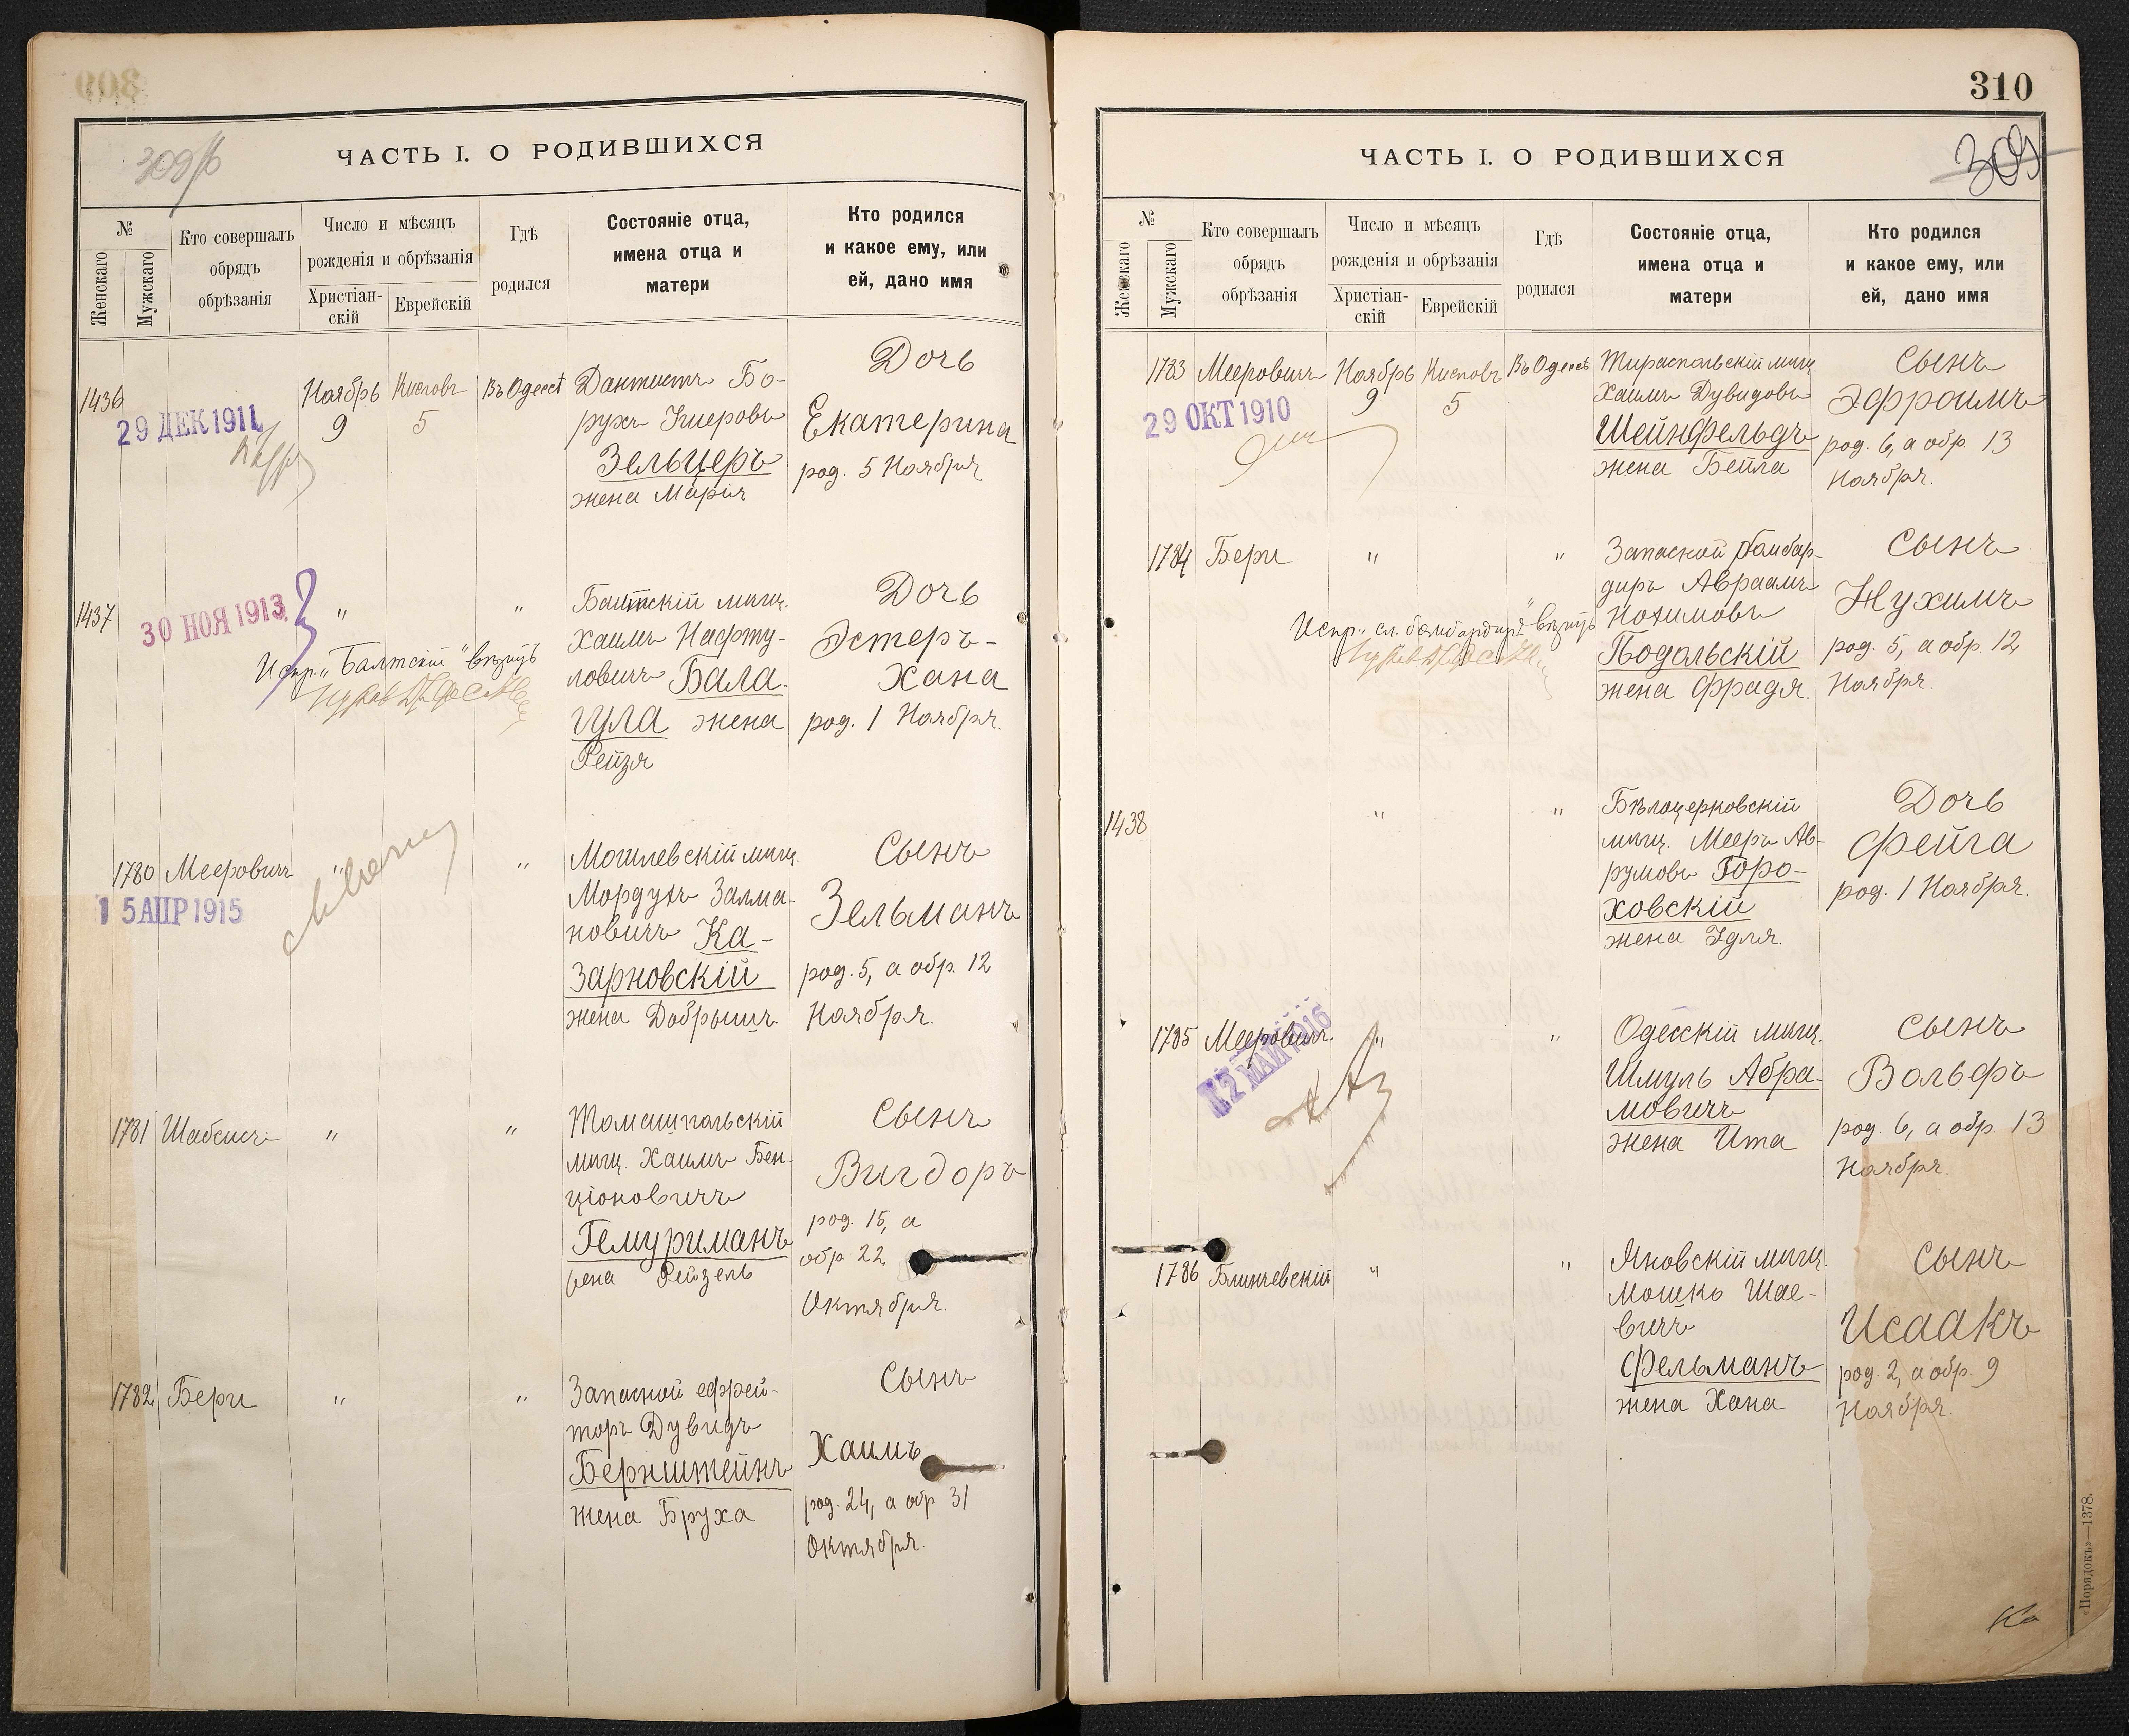 309
309/б
ЧАСТЬ I. О РОДИВШИХСЯ
№
Женскаго
Мужскаго
Кто совершалъ
обрядъ
обрѣзанія
Число и мѣсяцъ
рожденія и обрѣзанія
Христіан-
скій
Еврейскій
Гдѣ
родился
Состояніе отца,
имена отца и
матери
Кто родился
и какое ему, или
ей, дано имя
1436
29 ДЕК 1911
Ноябрь
9
Кислевъ
5
Въ Одессѣ
Дантистъ Бо-
рухъ Ушеровъ
Зельцеръ
жена Марія
Дочь
Екатерина
род. 5 Ноября
1437
30 НОЯ 1913
"
"
Испр. "Балтскій" вѣрить
Балтскій мѣщ.
Хаимъ Нафту-
ловичъ Бала-
гула жена
Рейзя
Дочь
Эстеръ-
Хана
род. 1 Ноября.
1780
Мееровичъ
15 АПР 1915
"
"
Могилевскій мѣщ.
Мордухъ Залма-
новичъ Ка-
зарновскій
жена Добрышъ
Сынъ
Зельманъ
род. 5, а обр. 12
Ноября.
1781
Шабсисъ
"
"
Томашпольскій
мѣщ. Хаимъ Бен-
ціоновичъ
Гемуриманъ
жена Рейзель
Сынъ
Вигдоръ
род. 15, а
обр 22
Октября.
1782
Бери
"
"
Запасной ефрей-
торъ Дувидъ
Бернштейнъ
жена Бруха
Сынъ
Хаимъ
род. 24, а обр 31
Октября.
310
309
ЧАСТЬ I. О РОДИВШИХСЯ
№
Женскаго
Мужскаго
Кто совершалъ
обрядъ
обрѣзанія
Число и мѣсяцъ
рожденія и обрѣзанія
Христіан-
скій
Еврейскій
Гдѣ
родился
Состояніе отца,
имена отца и
матери
Кто родился
и какое ему, или
ей, дано имя
1783
Мееровичъ
29 ОКТ 1910
Ноябрь
9
Кислевъ
5
Въ Одессѣ
Тираспольскій мѣщ.
Хаимъ Дувидовъ
Шейнфельдъ
жена Бейла
Сынъ
Эфроимъ
род. 6, а обр 13
Ноября.
1784
Бери
"
"
Испр. "сл. бомбардиръ" вѣрить
Запасной бомбар-
диръ Авраамъ
Нохимовъ
Подольскій
жена Фрадя.
Сынъ
Нухимъ
род. 5, а обр. 12
Ноября.
1438
"
"
Бѣлоцерковскій
мѣщ. Мееръ Ав-
румовъ Горо-
ховскій
жена Удля.
Дочь
Фейга
род. 1 Ноября.
1785
Мееровичъ
12 МАЙ 1916
"
"
Одесскій мѣщ.
Шмуль Абра-
мовичъ
жена Ита
Сынъ
Вольфъ
род. 6, а обр. 13
Ноября.
1786
Блиничевскій
"
"
Яновскій мѣщ.
Мошко Шае-
вичъ
Фельманъ
жена Хана
Сынъ
Исаакъ
род. 2, а обр. 9
Ноября.
«Порядокъ»—1378.